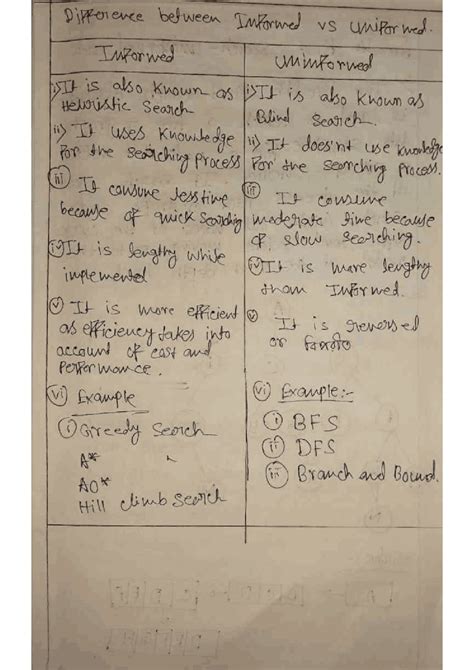 Difference between Informed vs Uniformed.
Informed
i) It is also known as
Heuristic Search
ii) It uses knowledge
for the searching process
iii) It consume less time
because of quick searching
iv) It is lengthy while
implemented
v) It is more efficient
as efficiency takes into
account of cost and
Performance.
vi) Example
i) Greedy Search
A* "
AO*
Hill climb search
Uninformed
i) It is also known as
Blind Search.
ii) It does'nt use knowledge
for the searching process.
iii) It consume
moderate time because
of slow searching.
iv) It is more lengthy
than Informed.
v) It is reversed
or
vi) Example:-
i) BFS
ii) DFS
iii) Branch and Bound.